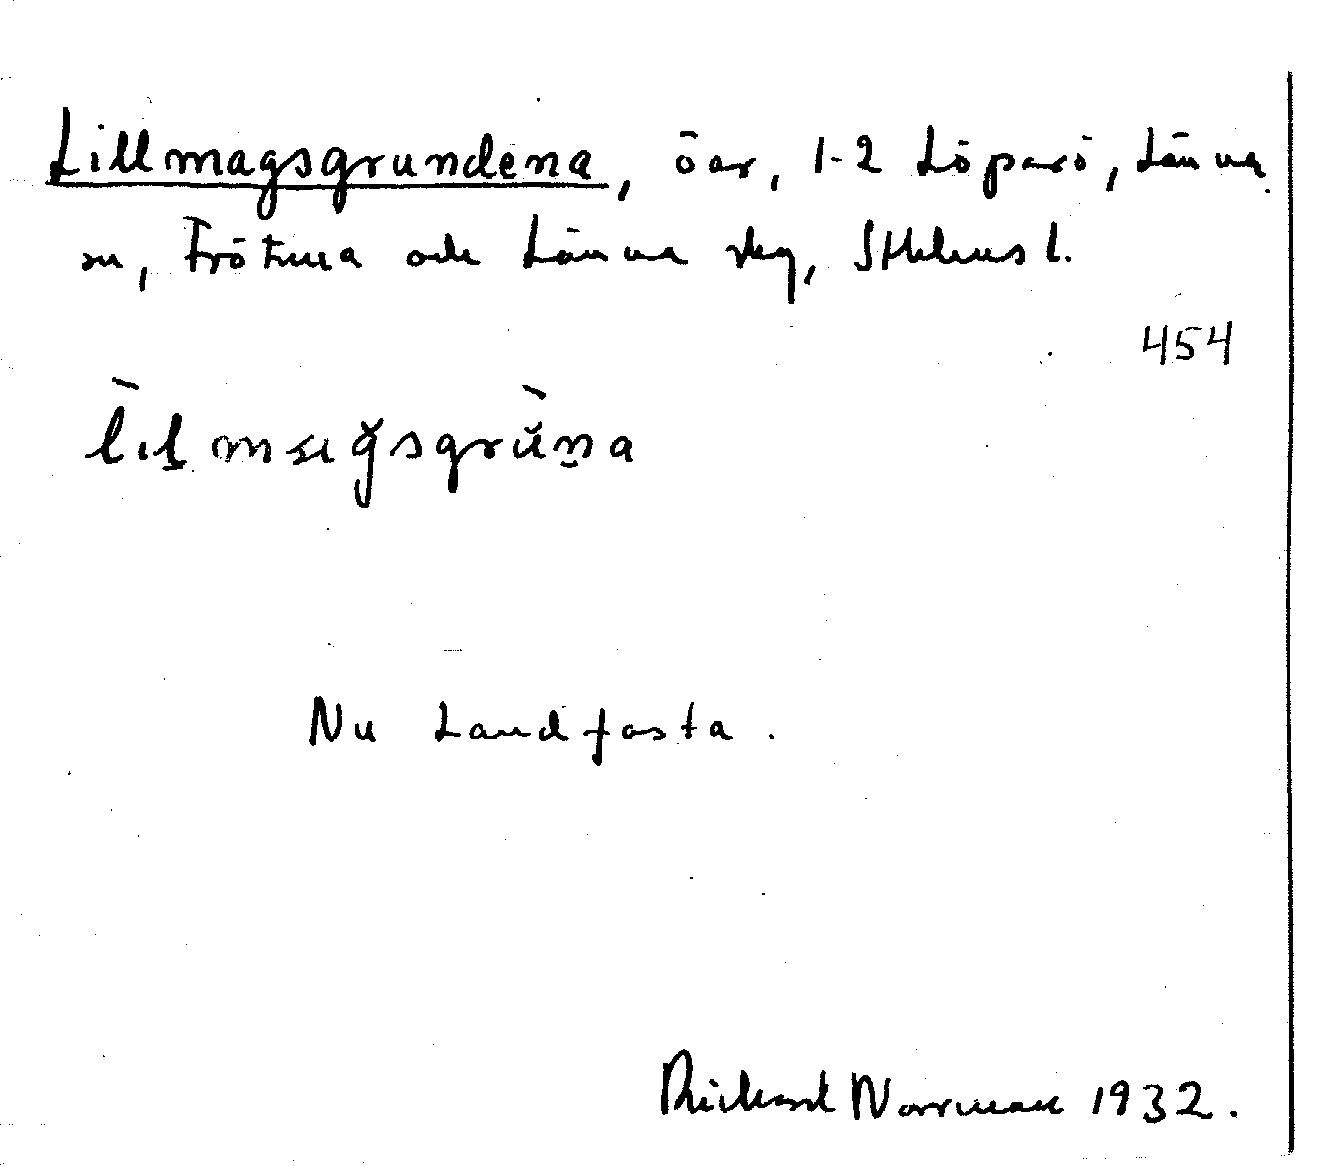 Lillmagsgrundena, öar, 1-2 Löparö, Länna
sn, Frötuna och Länna skg, Sthlms l.
454
Nu Landfasta.
Rickard Norrman 1932.